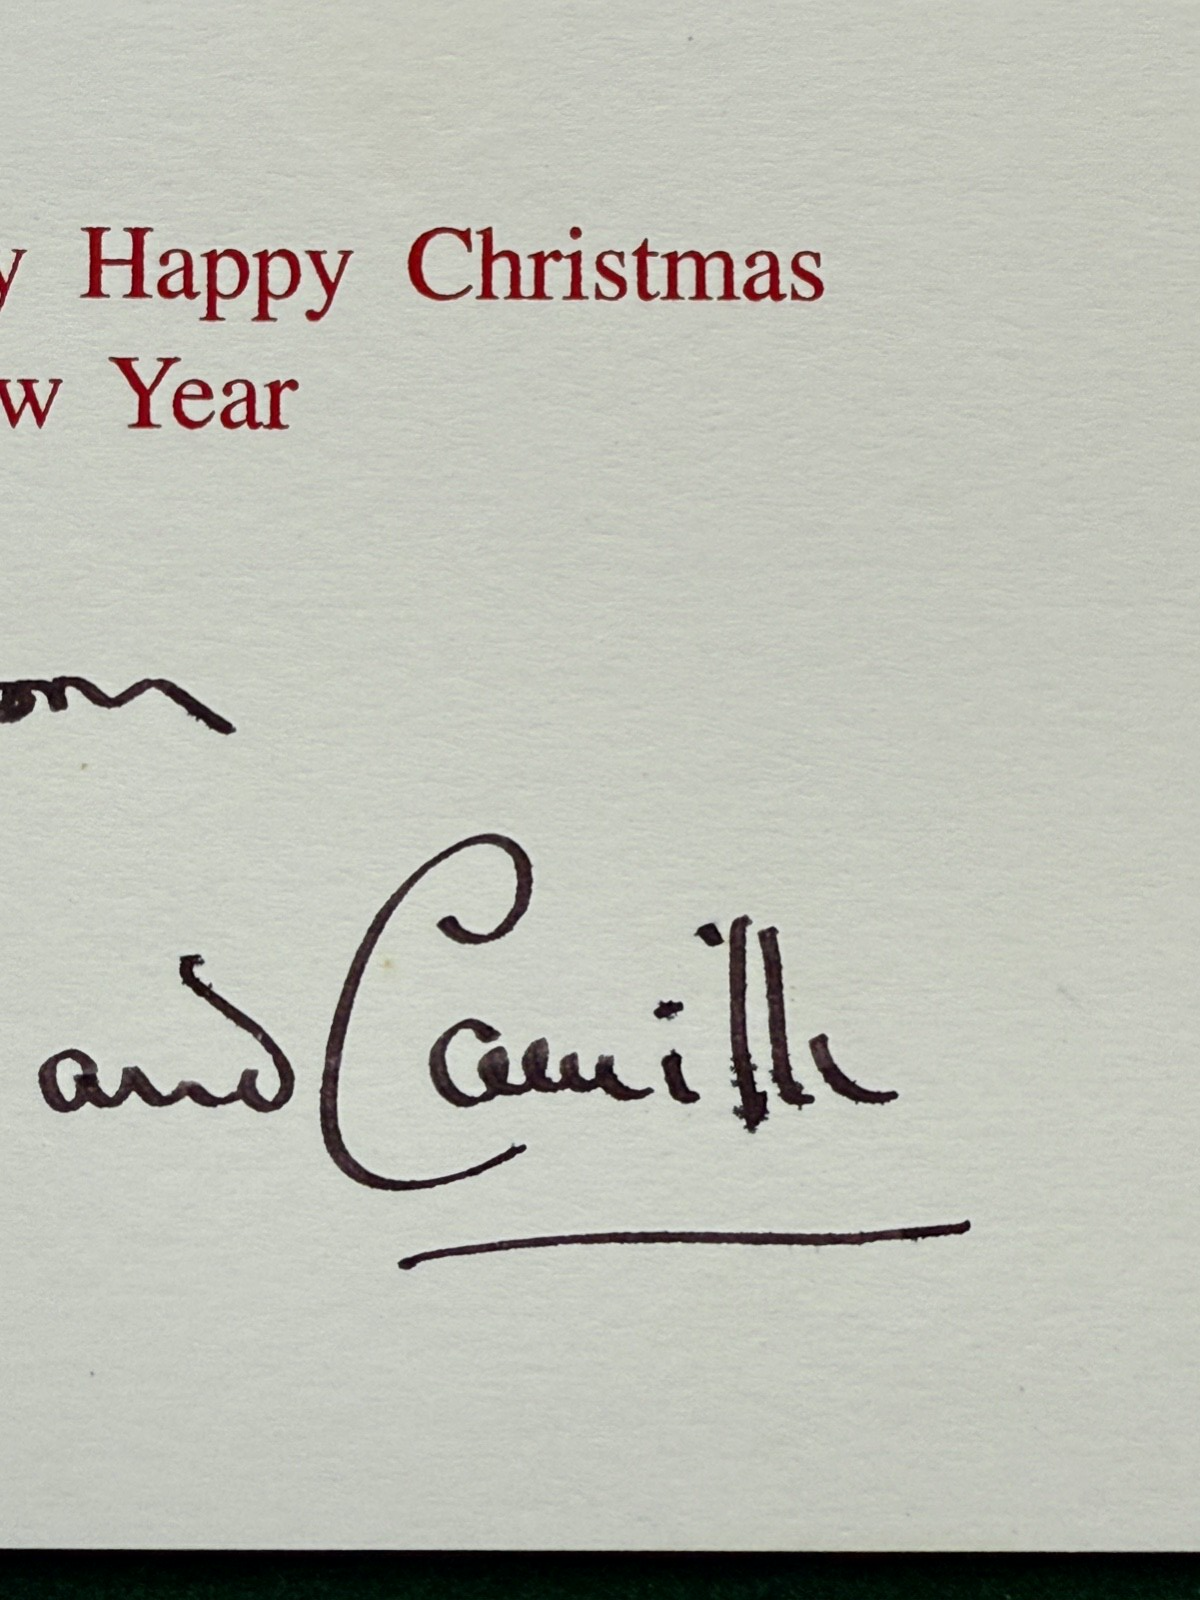 y Happy Christmas
w Year
from
and Camilla